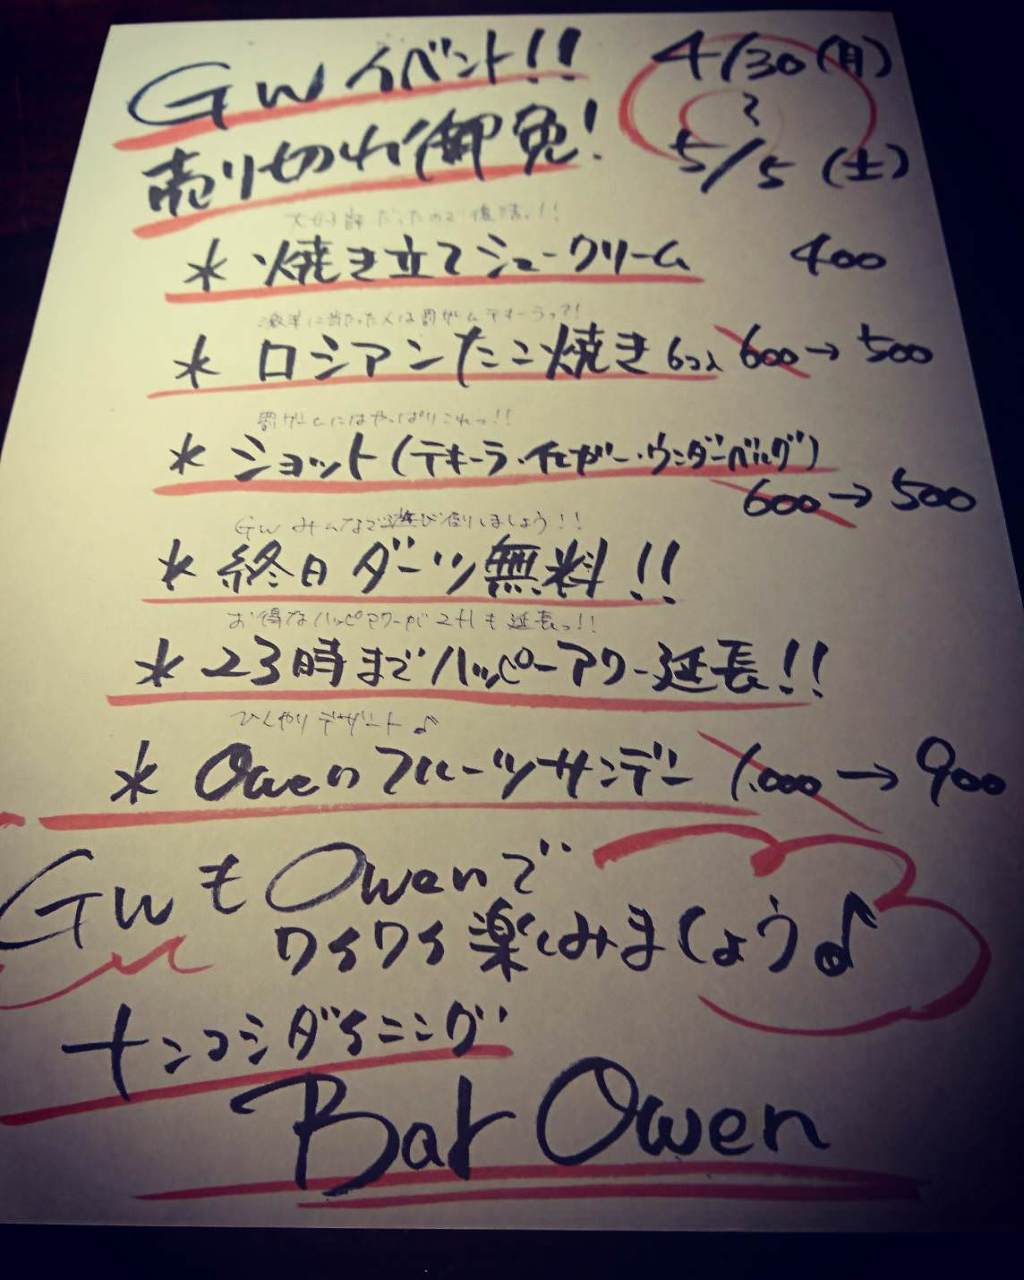 GWイベント!! 4/30(月)
〜
売り切れ御免! 5/5(土)
大好評だったので復活!!
* 焼き立てシュークリーム 400
激辛に当たった人は罰ゲームテキーラっ?!
* ロシアンたこ焼き 6コ入 600→500
罰ゲームにはやっぱりこれっ!!
* ショット(テキーラ・イエガー・ウンダーベルグ)
600→500
GWみんなで遊び倒しましょう!!
* 終日ダーツ無料!!
お得なハッピアワーが2hも延長っ!!
* 23時までハッピーアワー延長!!
ひんやりデザート♪
* Owenフルーツサンデー 1,000→900
GWもOwenで
ワイワイ楽しみましょう♪
ナンコシダイニング
Bar Owen